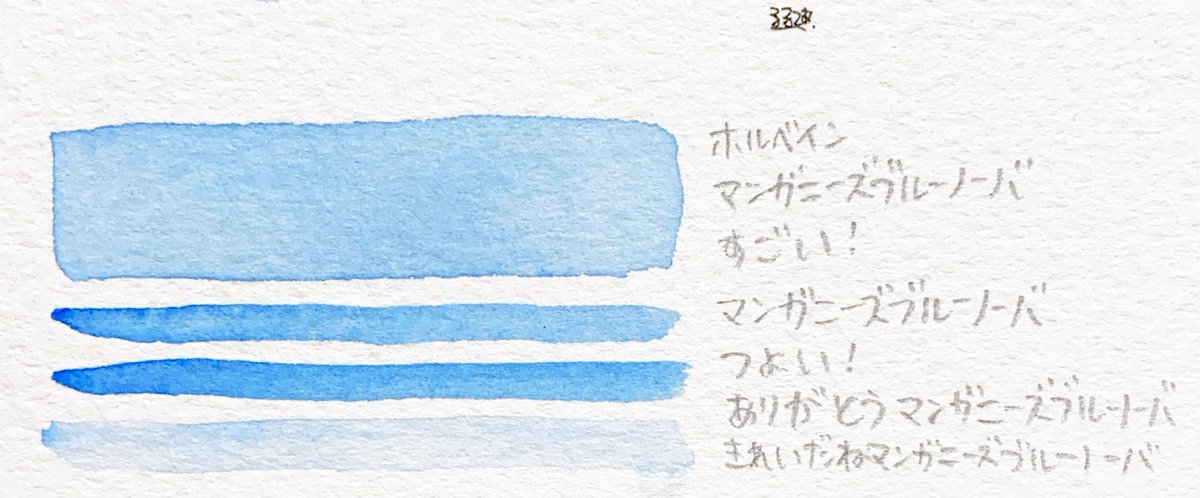 ホルベイン
マンガニーズブルーノーバ
すごい!
マンガニーズブルーノーバ
つよい!
ありがとうマンガニーズブルーノーバ
きれいだねマンガニーズブルーノーバ